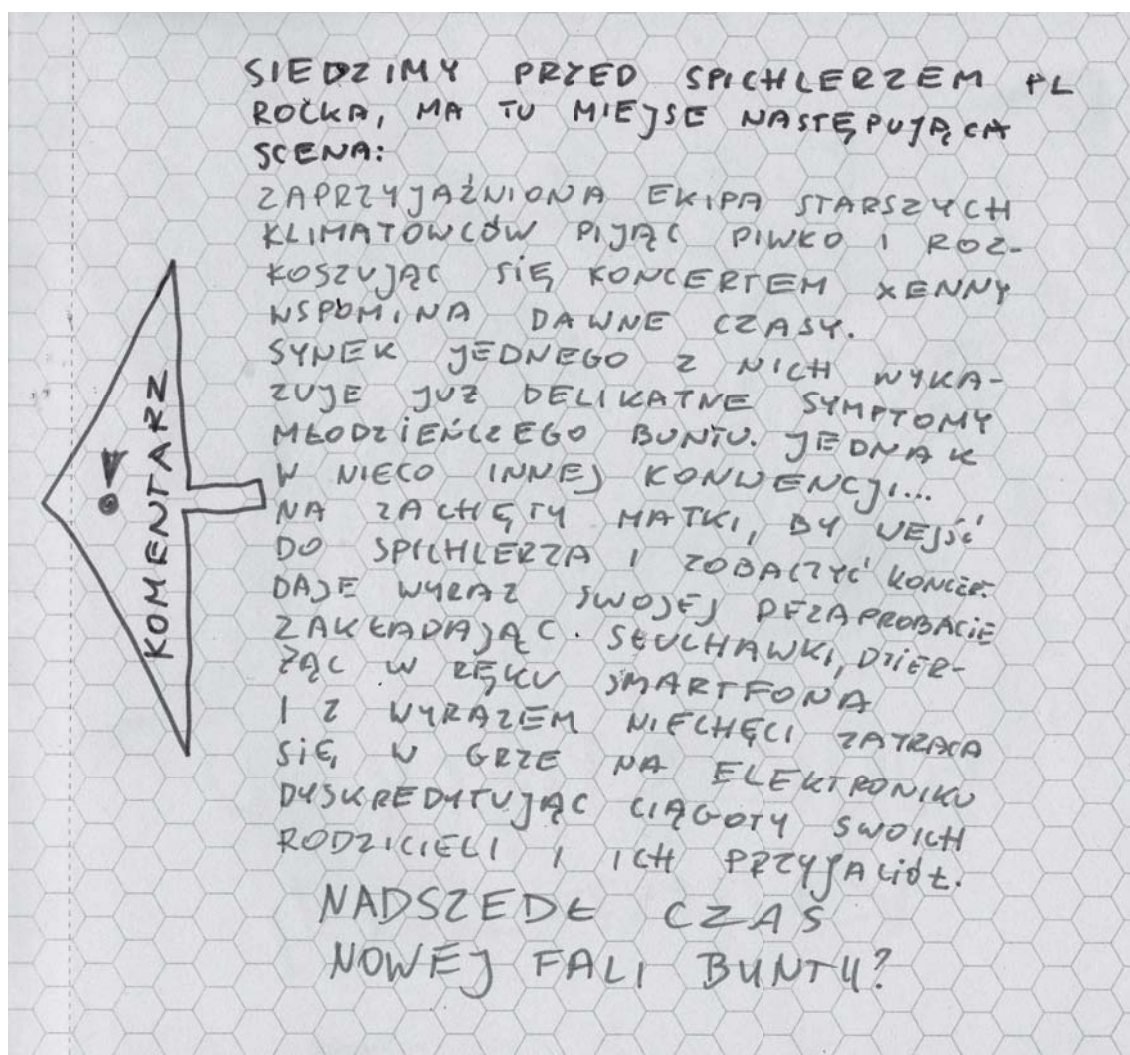 SIEDZIMY PRZED SPICHLERZEM PL
ROCKA, MA TU MIEJSE NASTĘPUJĄCA
SCENA:
ZAPRZYJAŹNIONA EKIPA STARSZYCH
KLIMATOWCÓW PIJĄC PIWKO I ROZ-
KOSZUJĄC SIĘ KONCERTEM XENNY
WSPOMINA DAWNE CZASY.
SYNEK JEDNEGO Z NICH WYKA-
ZUJE JUZ DELIKATNE SYMPTOMY
MŁODZIEŃCZEGO BUNTU. JEDNAK
W NIECO INNEJ KONWENCJI...
NA ZACHĘTY MATKI, BY WEJŚĆ
DO SPICHLERZA I ZOBACZYĆ KONCERT
DAJE WYRAZ SWOJEJ DEZAPROBACIE
ZAKŁADAJĄC SŁUCHAWKI, DZIER-
ŻĄC W RĘKU SMARTFONA
I Z WYRAZEM NIECHĘCI ZATRACA
SIĘ W GRZE NA ELEKTRONIKU
DYSKREDYTUJĄC CIĄGOTY SWOICH
RODZICIELI I ICH PRZYJACIÓŁ.
NADSZEDŁ CZAS
NOWEJ FALI BUNTU?
KOMENTARZ
!